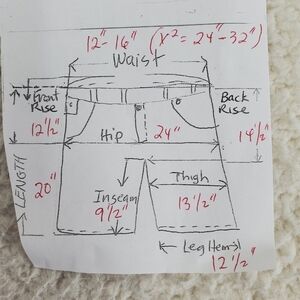 12" - 16" (x² = 24" - 32")
Waist
Front Rise
12 1/2"
Back Rise
14 1/2"
Hip
24"
LENGTH
20"
Inseam
9 1/2"
Thigh
13 1/2"
Leg Hem
12 1/2"